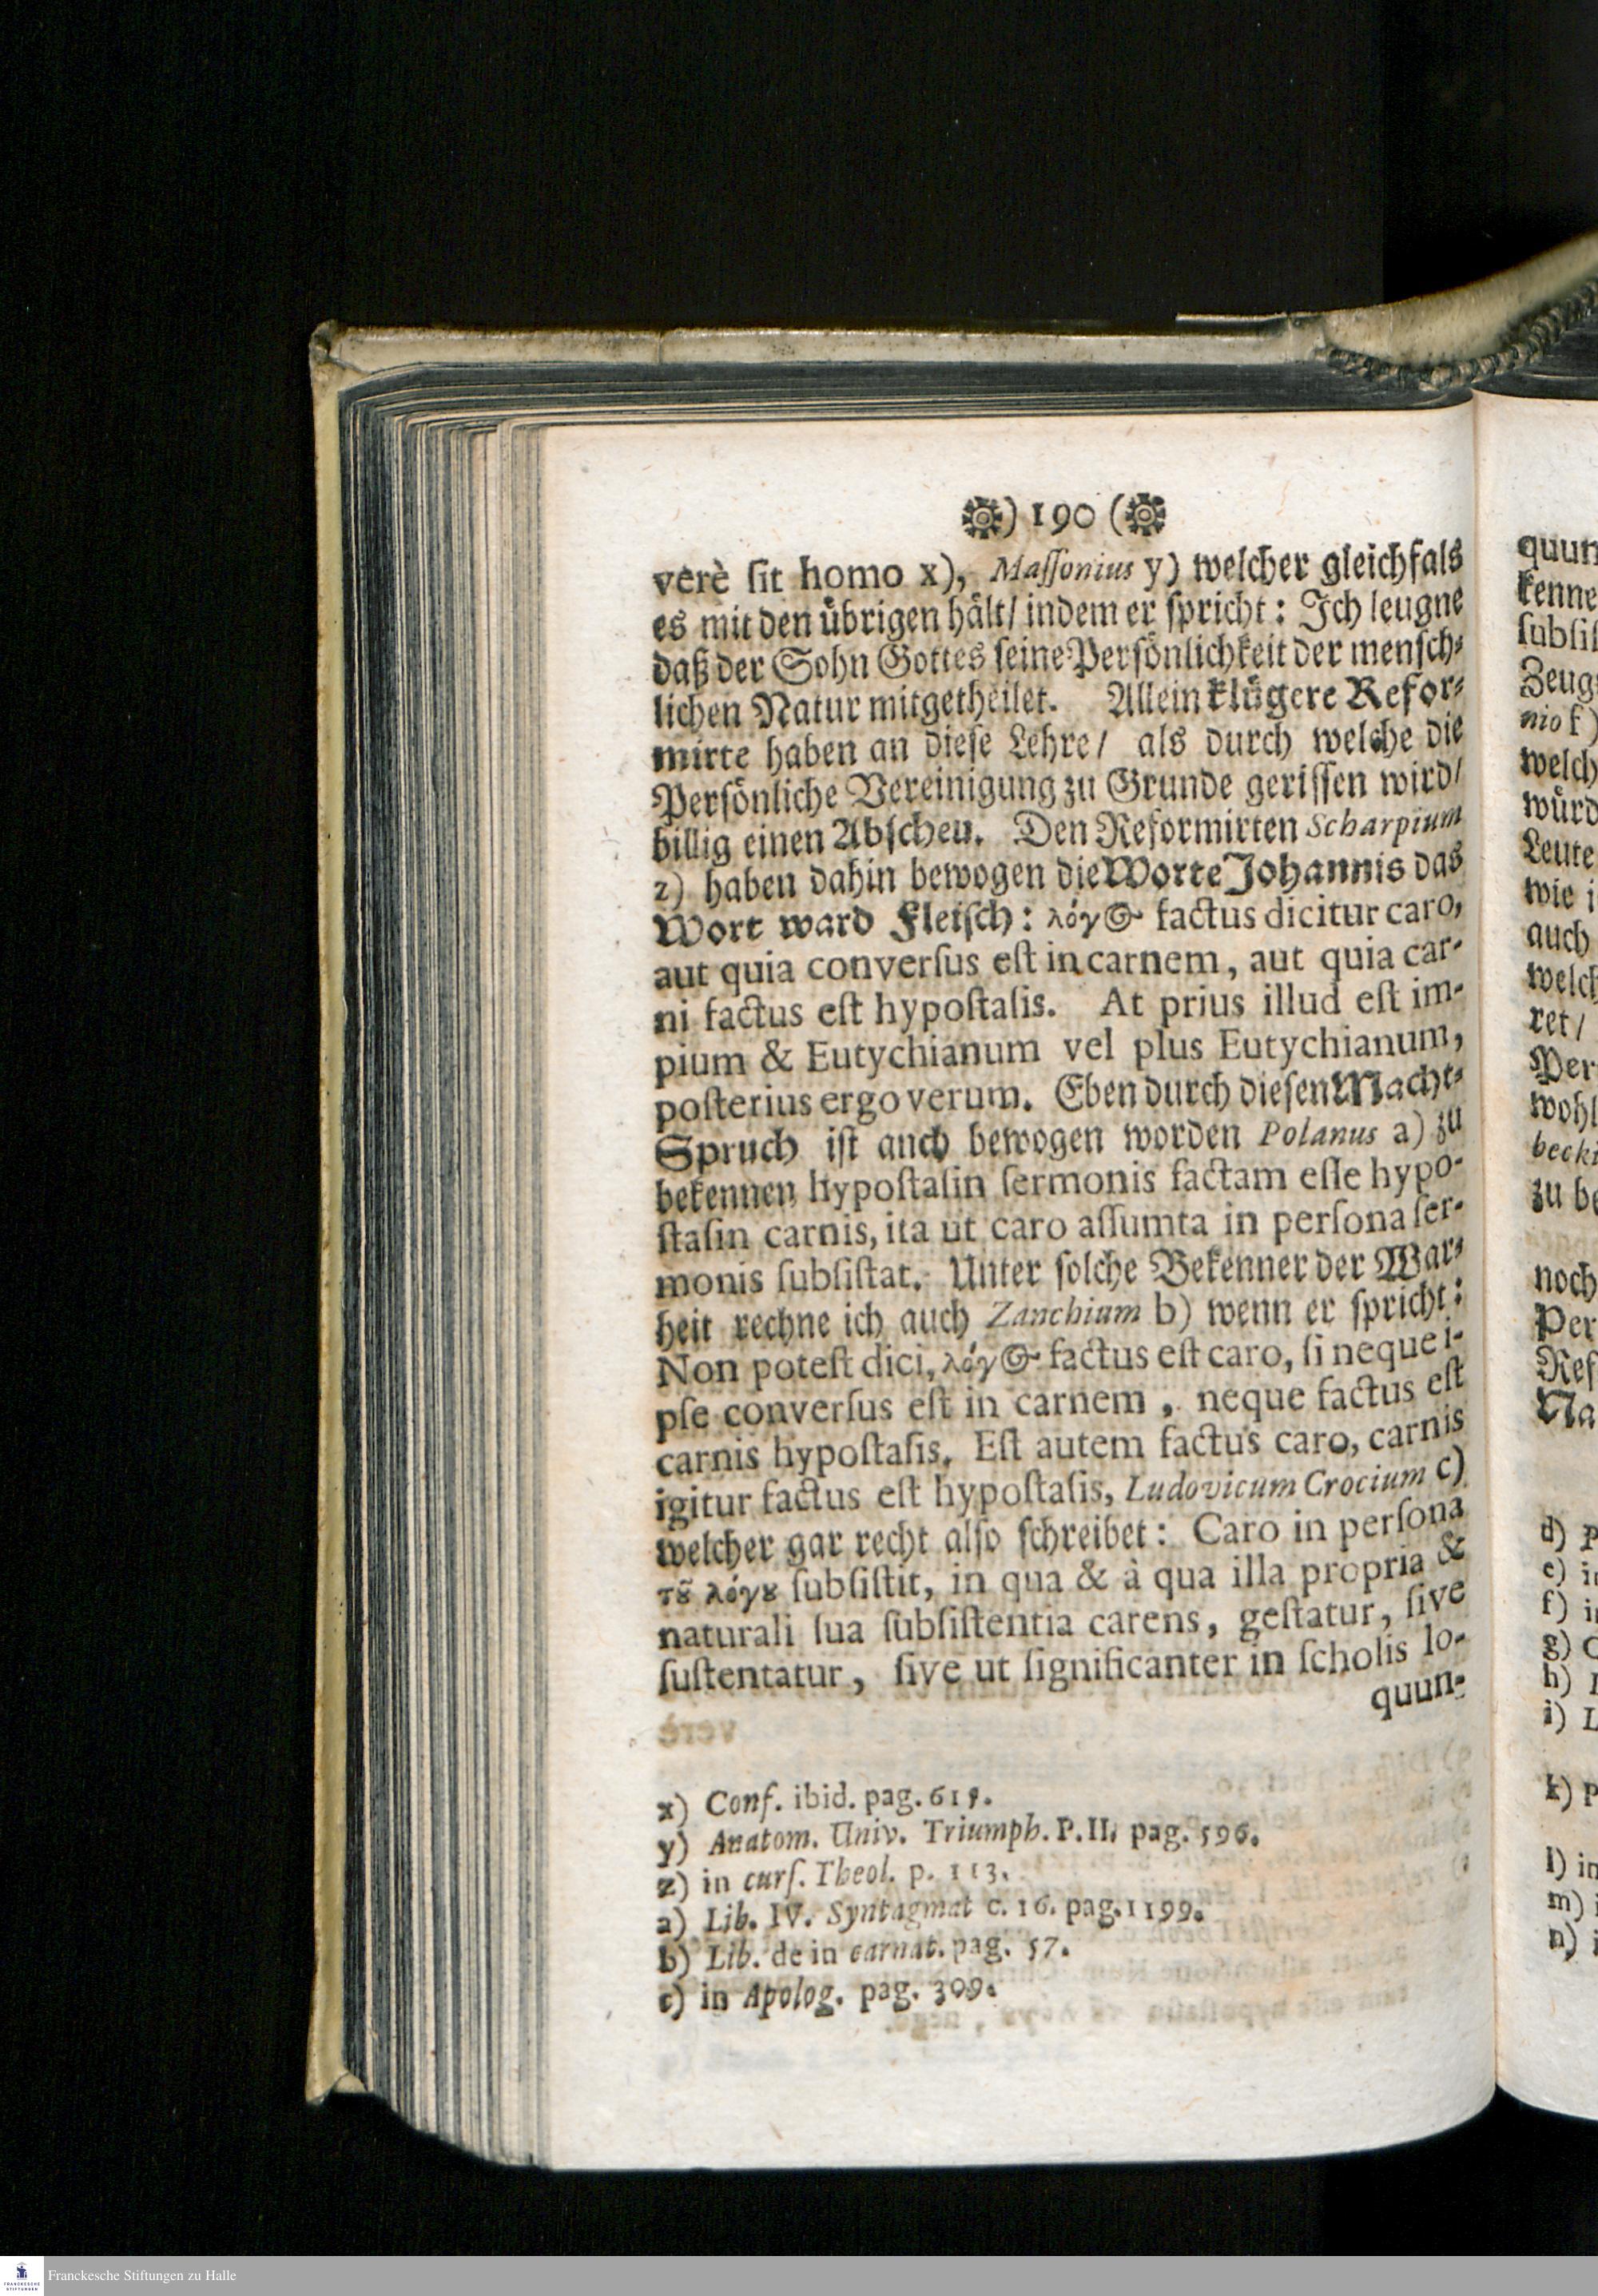 ) 190 (
verè ſit homo x), Maſſonius y) welcher gleichfals
es mit den übrigen hält/ indem er ſpricht: Ich leugne
daß der Sohn Gottes ſeine Perſönlichkeit der menſch-
lichen Natur mitgetheilet. Allein klügere Refor-
mirte haben an dieſe Lehre/ als durch welche die
Perſönliche Vereinigung zu Grunde geriſſen wird/
billig einen Abſcheu. Den Reformirten Scharpium
z) haben dahin bewogen die Worte Johannis das
Wort ward Fleiſch: λόγ㊀ factus dicitur caro,
aut quia converſus eſt in carnem, aut quia car-
ni factus eſt hypoſtaſis. At prius illud eſt im-
pium & Eutychianum vel plus Eutychianum,
poſterius ergo verum. Eben durch dieſen Macht-
Spruch iſt auch bewogen worden Polanus a) zu
bekennen hypoſtaſin ſermonis factam eſſe hypo-
ſtaſin carnis, ita ut caro aſſumta in perſona ſer-
monis ſubſiſtat. Unter ſolche Bekenner der War-
heit rechne ich auch Zanchium b) wenn er ſpricht:
Non poteſt dici, λόγ㊀ factus eſt caro, ſi neque i-
pſe converſus eſt in carnem, neque factus eſt
carnis hypoſtaſis. Eſt autem factus caro, carnis
igitur factus eſt hypoſtaſis, Ludovicum Crocium c)
welcher gar recht alſo ſchreibet: Caro in perſona
τȣ͂ λόγȣ ſubſiſtit, in qua & à qua illa propria &
naturali ſua ſubſiſtentia carens, geſtatur, ſive
ſuſtentatur, ſive ut ſignificanter in ſcholis lo-
quun-
x) Conf. ibid. pag. 615.
y) Anatom. Univ. Triumph. P. II. pag. 596.
z) in curſ. Theol. p. 113.
a) Lib. IV. Syntagmat c. 16. pag. 1199.
b) Lib. de in carnat. pag. 57.
c) in Apolog. pag. 309.
quun
kenne
ſubſiſ
Zeug
nio k)
welch
würd
Leute
wie i
auch
welch
ret/
Per
wohl
becki
zu be
noch
Per
Ref
Na
d) P
e) in
f) in
g) C
h) I
i) L
k) P
l) in
m) i
n) i
Franckesche Stiftungen zu Halle